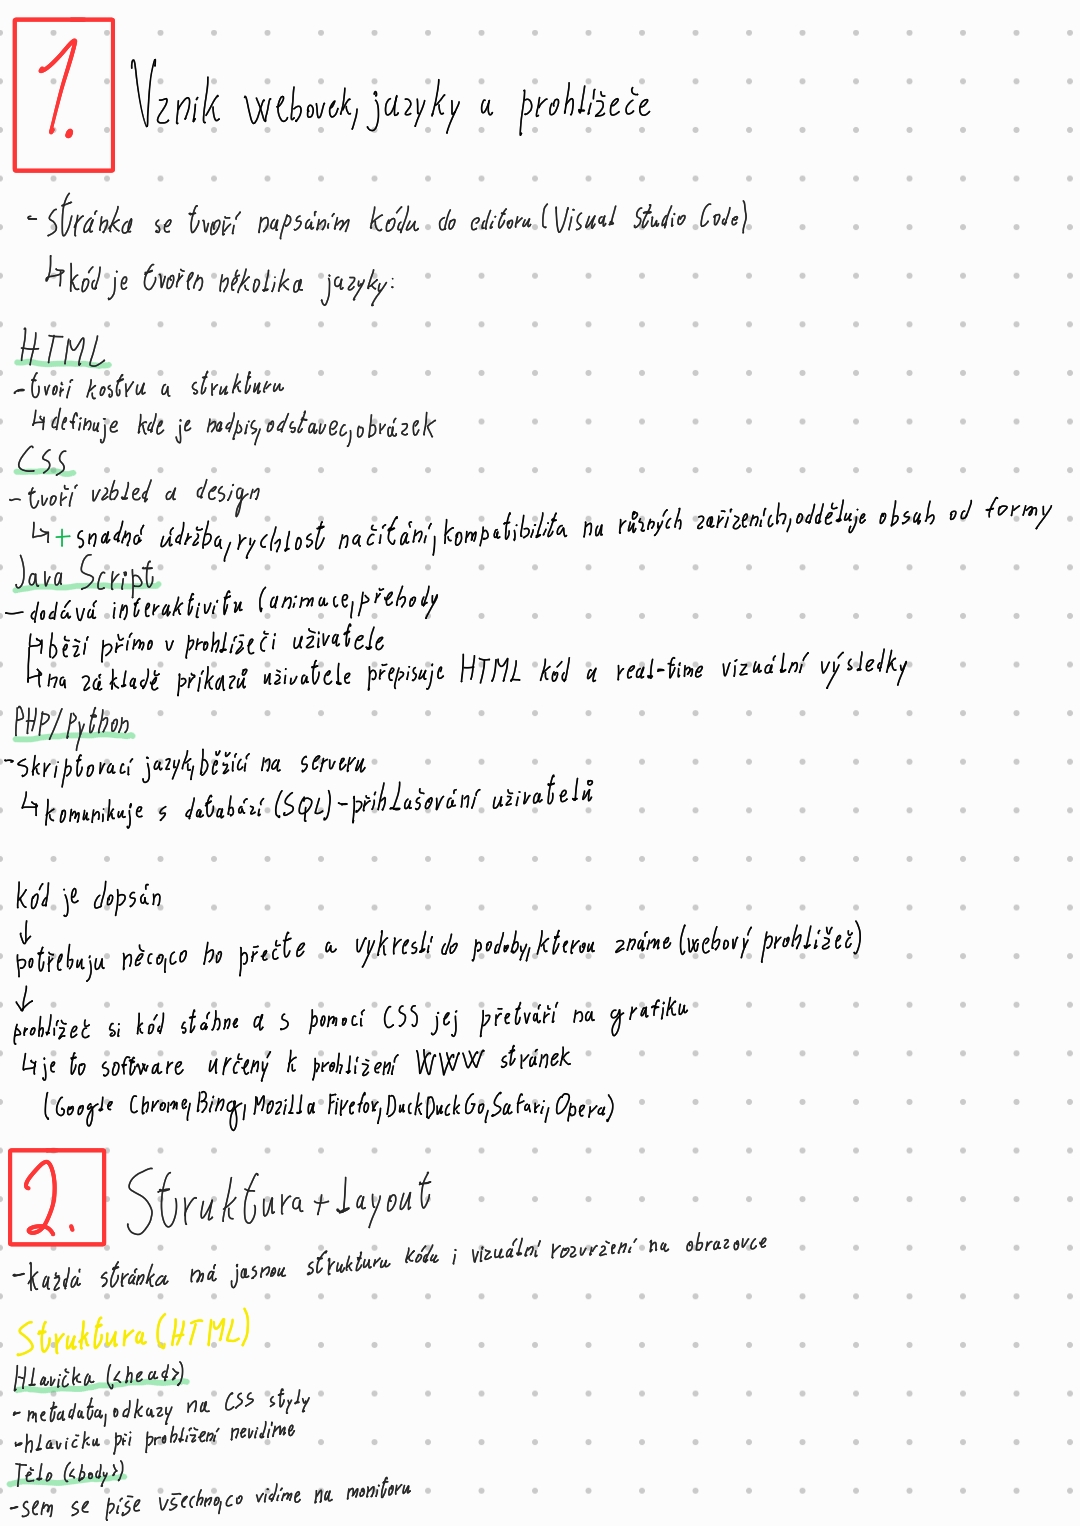 1. Vznik webovek, jazyky a prohlížeče
- stránka se tvoří napsáním kódu do editoru (Visual Studio Code)
↳ kód je tvořen několika jazyky:
HTML
- tvoří kostru a strukturu
↳ definuje kde je nadpis, odstavec, obrázek
CSS
- tvoří vzhled a design
↳ + snadná údržba, rychlost načítání, kompatibilita na různých zařízeních, odděluje obsah od formy
Java Script
- dodává interaktivitu (animace, přehody
↳ běží přímo v prohlížeči uživatele
↳ na základě příkazů uživatele přepisuje HTML kód a real-time vizuální výsledky
PHP/Python
- skriptovací jazyk, běžící na serveru
↳ komunikuje s databází (SQL) - přihlašování uživatelů
kód je dopsán
↓
potřebuju něco, co ho přečte a vykreslí do podoby, kterou známe (webový prohlížeč)
↓
prohlížeč si kód stáhne a s pomocí CSS jej přetváří na grafiku
↳ je to software určený k prohlížení WWW stránek
(Google Chrome, Bing, Mozilla Firefox, DuckDuckGo, Safari, Opera)
2. Struktura + layout
- každá stránka má jasnou strukturu kódu i vizuální rozvržení na obrazovce
Struktura (HTML)
Hlavička (<head>)
- metadata, odkazy na CSS styly
- hlavičku při prohlížení nevidíme
Tělo (<body>)
- sem se píše všechno, co vidíme na monitoru